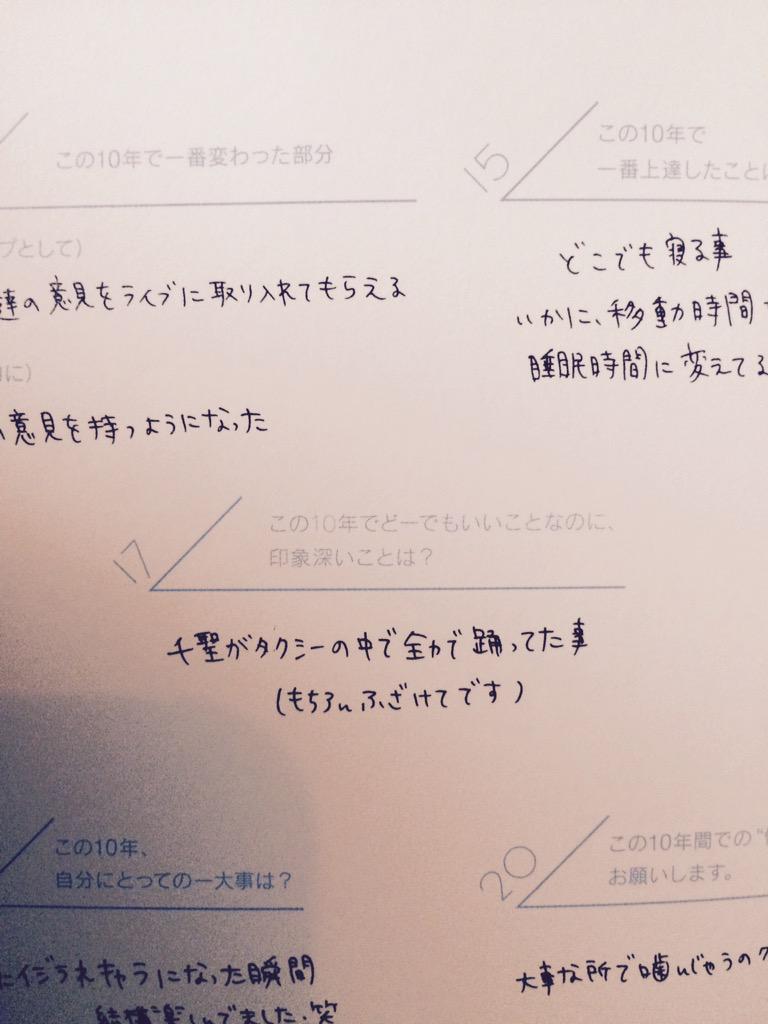 この10年で一番変わった部分
プとして)
達の意見をライブに取り入れてもらえる
に)
意見を持つようになった
15
この10年で
一番上達したことは
どこでも寝る事
いかに、移動時間
睡眠時間に変えてる
17
この10年でどーでもいいことなのに、
印象深いことは?
千聖がタクシーの中で全力で踊ってた事
(もちろんふざけてです)
この10年、
自分にとっての一大事は?
にイジられキャラになった瞬間
結構楽しいでました.笑
20
この10年間での"
お願いします。
大事な所で噛んじゃうのク